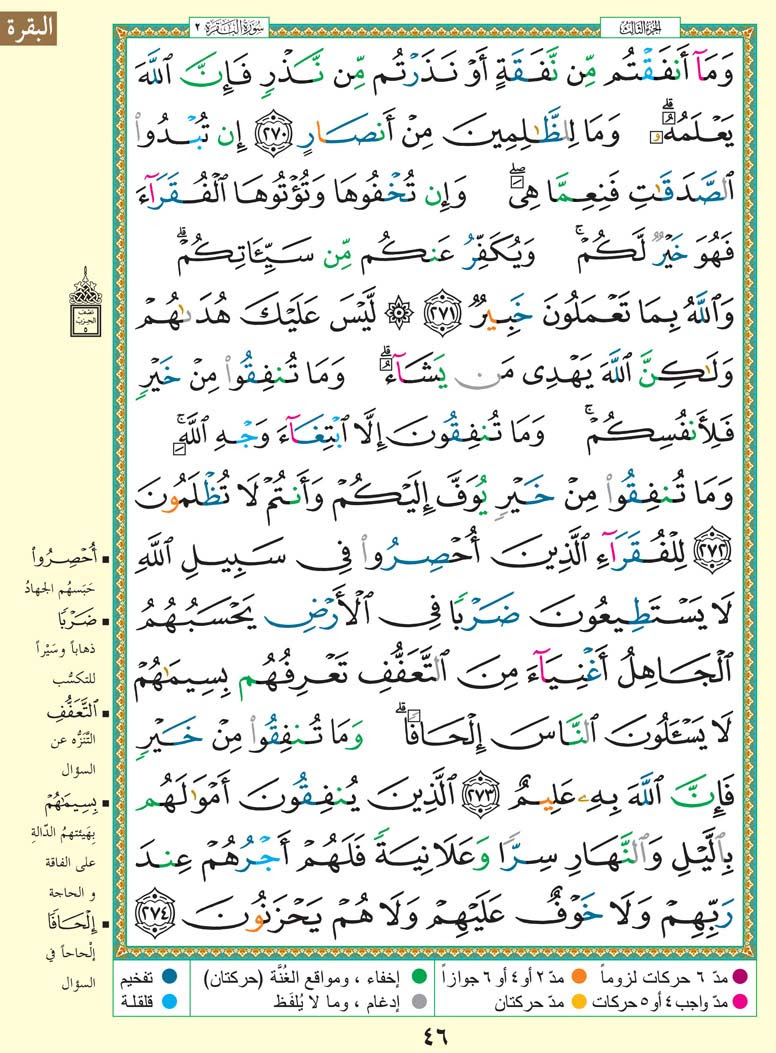 البقرة
سُورَةُ البَقَرَةِ ٢
الجزء الثالث
وَمَآ أَنفَقْتُم مِّن نَّفَقَةٍ أَوْ نَذَرْتُم مِّن نَّذْرٍ فَإِنَّ ٱللَّهَ
يَعْلَمُهُۥ ۗ وَمَا لِلظَّٰلِمِينَ مِنْ أَنصَارٍ ﴿٢٧٠﴾ إِن تُبْدُوا۟
ٱلصَّدَقَٰتِ فَنِعِمَّا هِىَ ۖ وَإِن تُخْفُوهَا وَتُؤْتُوهَا ٱلْفُقَرَآءَ
فَهُوَ خَيْرٌ لَّكُمْ ۚ وَيُكَفِّرُ عَنكُم مِّن سَيِّـَٔاتِكُمْ ۗ
وَٱللَّهُ بِمَا تَعْمَلُونَ خَبِيرٌ ﴿٢٧١﴾ ۞ لَّيْسَ عَلَيْكَ هُدَىٰهُمْ
وَلَٰكِنَّ ٱللَّهَ يَهْدِى مَن يَشَآءُ ۗ وَمَا تُنفِقُوا۟ مِنْ خَيْرٍ
فَلِأَنفُسِكُمْ ۚ وَمَا تُنفِقُونَ إِلَّا ٱبْتِغَآءَ وَجْهِ ٱللَّهِ ۚ
وَمَا تُنفِقُوا۟ مِنْ خَيْرٍ يُوَفَّ إِلَيْكُمْ وَأَنتُمْ لَا تُظْلَمُونَ
﴿٢٧٢﴾ لِلْفُقَرَآءِ ٱلَّذِينَ أُحْصِرُوا۟ فِى سَبِيلِ ٱللَّهِ
لَا يَسْتَطِيعُونَ ضَرْبًا فِى ٱلْأَرْضِ يَحْسَبُهُمُ
ٱلْجَاهِلُ أَغْنِيَآءَ مِنَ ٱلتَّعَفُّفِ تَعْرِفُهُم بِسِيمَٰهُمْ
لَا يَسْـَٔلُونَ ٱلنَّاسَ إِلْحَافًا ۗ وَمَا تُنفِقُوا۟ مِنْ خَيْرٍ
فَإِنَّ ٱللَّهَ بِهِۦ عَلِيمٌ ﴿٢٧٣﴾ ٱلَّذِينَ يُنفِقُونَ أَمْوَٰلَهُم
بِٱلَّيْلِ وَٱلنَّهَارِ سِرًّا وَعَلَانِيَةً فَلَهُمْ أَجْرُهُمْ عِندَ
رَبِّهِمْ وَلَا خَوْفٌ عَلَيْهِمْ وَلَا هُمْ يَحْزَنُونَ ﴿٢٧٤﴾
نصف
الحزب
٥
أُحْصِرُوا۟
حَبَسهُم الجهادُ
ضَرْبًا
ذهاباً وسَيْراً
للتكسُّب
ٱلتَّعَفُّفِ
التَّنَزُّه عن
السؤال
بِسِيمَٰهُمْ
بِهَيئتهمُ الدّالةِ
على الفاقة
و الحاجة
إِلْحَافًا
إلْحاحاً في
السؤال
مدّ ٦ حركات لزوماً
مدّ ٢ أو ٤ أو ٦ جوازاً
مدّ واجب ٤ أو ٥ حركات
مدّ حركتان
إخفاء ، ومواقع الغُنَّة (حركتان)
إدغام ، وما لا يُلفَظ
تفخيم
قلقلة
٤٦